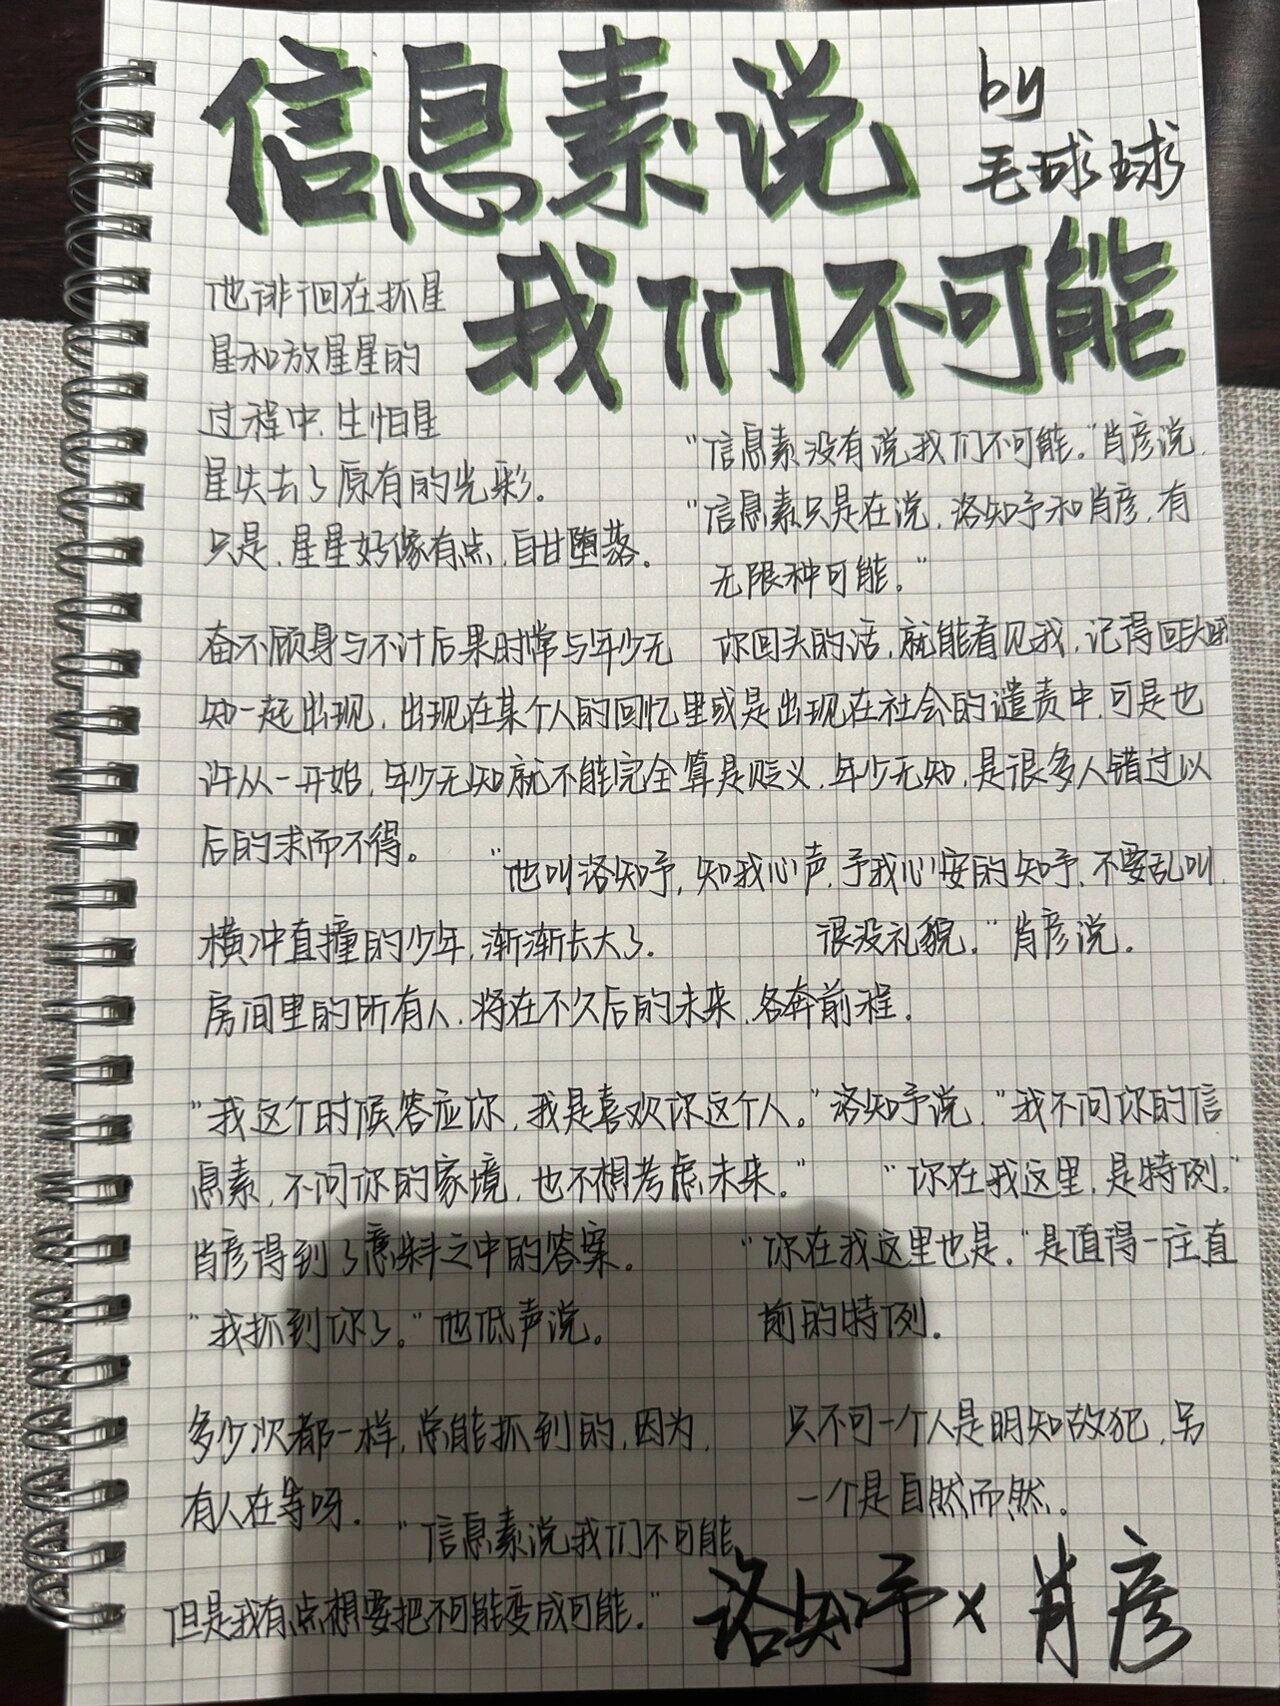 信息素说
by
毛球球
我们不可能
他诽徊在抓星
星和放星星的
过程中,生怕星
星失去了原有的光彩。
只是,星星好像有点,自甘堕落。
"信息素没有说我们不可能。"肖彦说,
"信息素只是在说,洛知予和肖彦,有
无限种可能。"
奋不顾身与不计后果时常与年少无
知一起出现,出现在某个人的回忆里或是出现在社会的谴责中,可是也
许从一开始,年少无知就不能完全算是贬义,年少无知,是很多人错过以
后的求而不得。
你回头的话,就能看见我,记得回头
"他叫洛知予,知我心声,予我心安的知予,不要乱叫,
很没礼貌。"肖彦说。
横冲直撞的少年,渐渐长大了.
房间里的所有人,将在不久后的未来,各奔前程.
"我这个时候答应你,我是喜欢你这个人。"洛知予说,"我不问你的信
息素,不问你的家境,也不想考虑未来。"
肖彦得到了意料之中的答案。
"我抓到你了。"他低声说。
"你在我这里,是特例。"
"你在我这里也是。"是值得一往直
前的特例.
多少次都一样,总能抓到的,因为,
有人在等呀.
只不过一个人是明知故犯,另
一个是自然而然.
"信息素说我们不可能,
但是我有点想要把不可能变成可能."
洛知予×肖彦